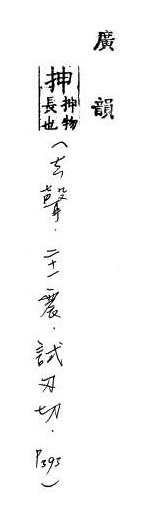 廣韻
抻抻物長也
(去聲．二十一震．試刃切．P393)